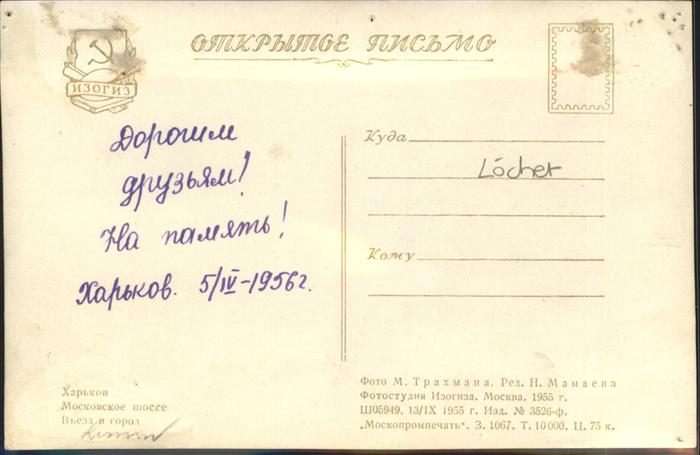 ОТКРЫТОЕ ПИСЬМО
ИЗОГИЗ
Дорогим
друзьям!
На память!
Харьков. 5/IV-1956г.
Куда
Löcher
Кому
Харьков
Московское шоссе
Въезд в город
Фото М. Трахмана. Ред. Н. Мамаева
Фотостудия Изогиза. Москва. 1955 г.
Ш05949. 13/IX 1955 г. Изд. № 3526-ф.
„Москопромпечать". З. 1067. Т. 10000. Ц. 75 к.